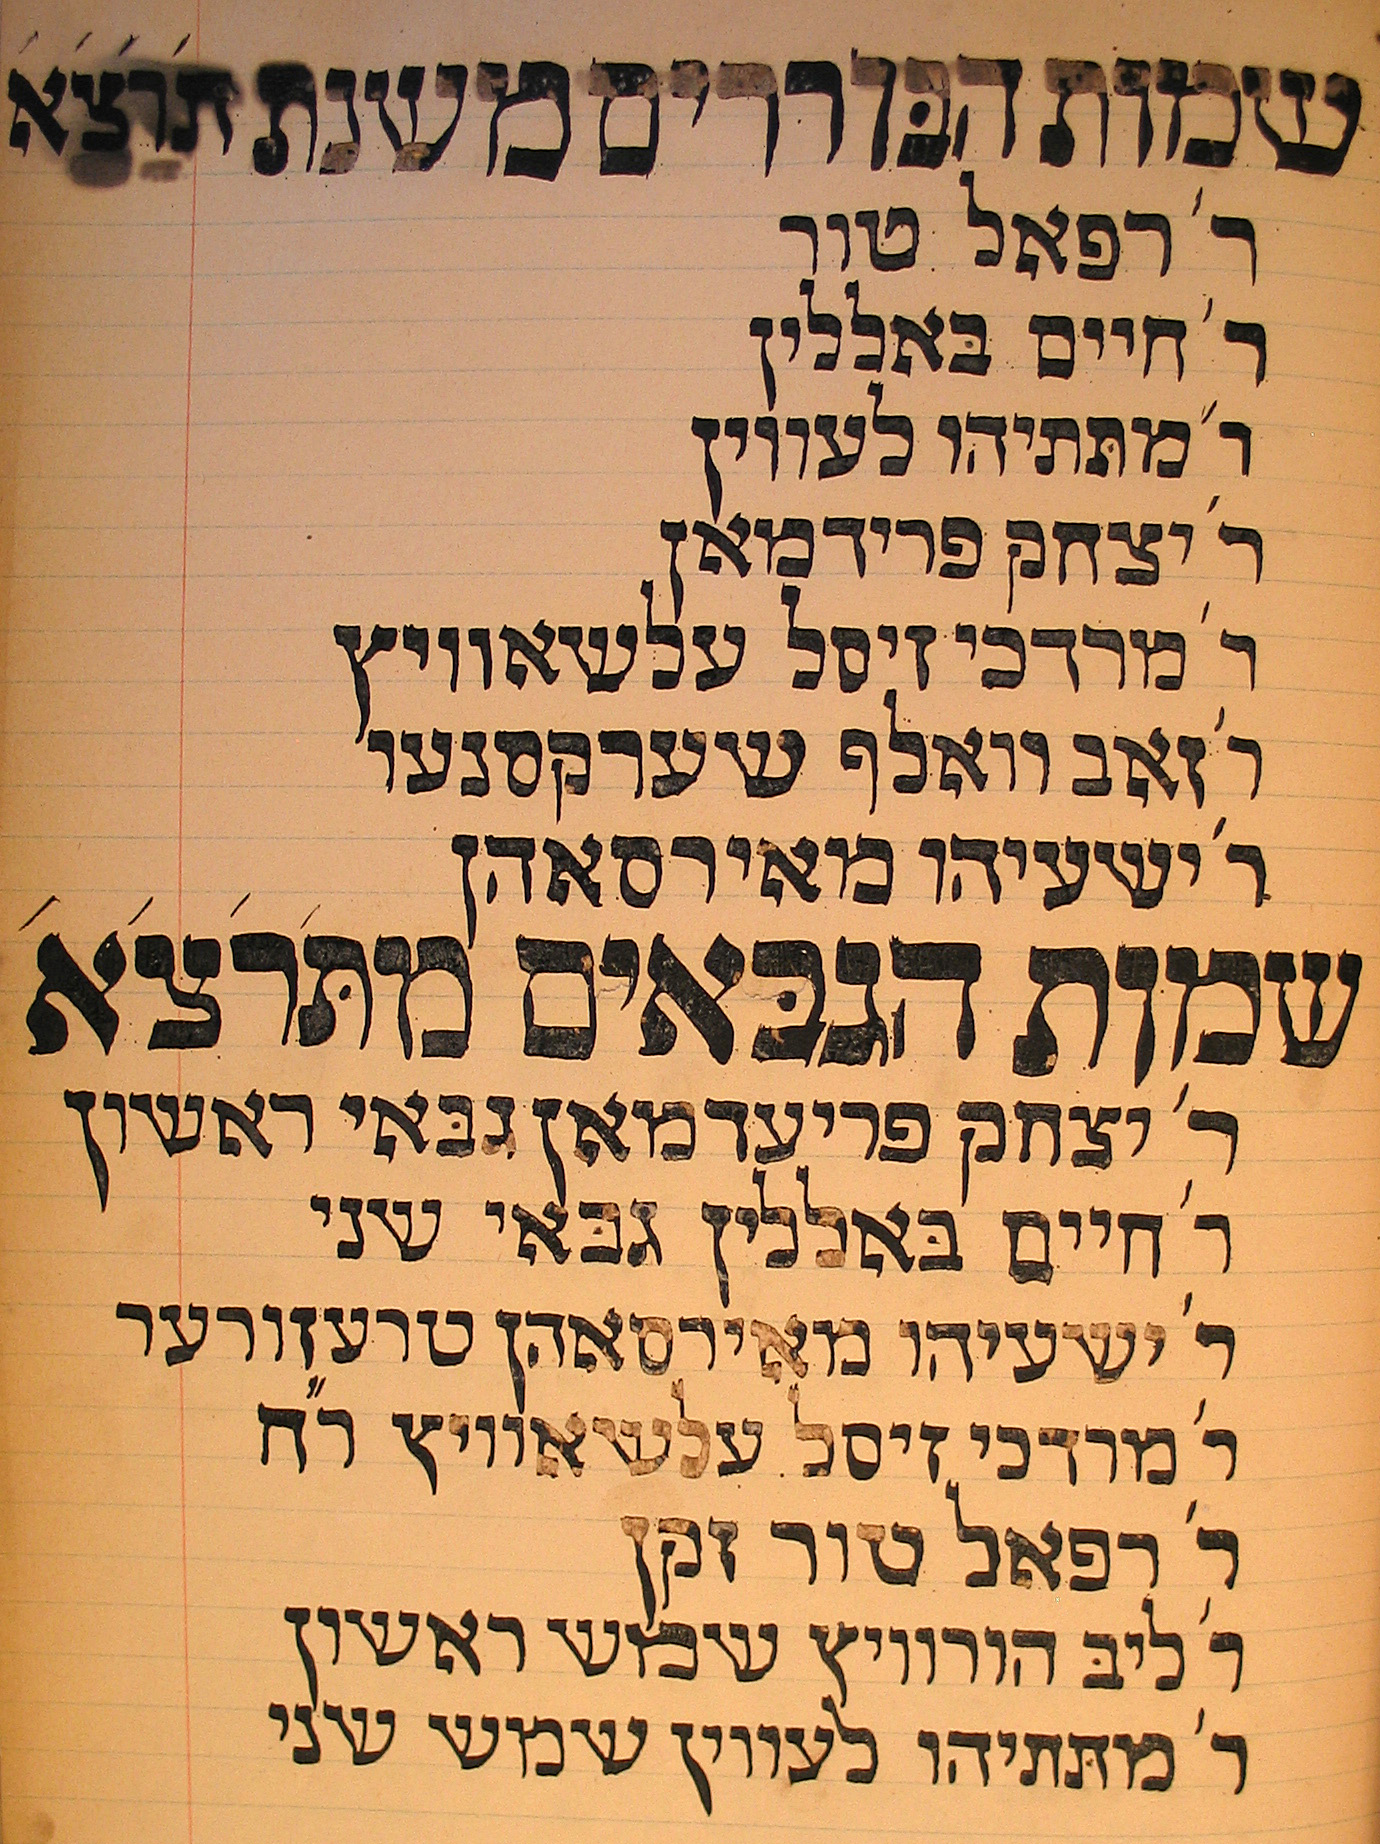 שמות הבּוררים משנת ת׳ר׳צ׳א׳
ר׳ רפאל טור
ר׳ חיים בּאללין
ר׳ מתּתיהו לעווין
ר׳ יצחק פרידמאן
ר׳ מרדכי זיסל עלשאוויץ
ר׳ זאב וואלף שערקסנער
ר׳ ישעיהו מאירסאהן
שמות הגבּאים מתּ׳ר׳צ׳א׳
ר׳ יצחק פריעדמאן גבּאי ראשון
ר׳ חיים בּאללין גבּאי שני
ר׳ ישעיהו מאירסאהן טרעזורער
ר׳ מרדכי זיסל עלשאוויץ ר״ח
ר׳ רפאל טור זקן
ר׳ ליבּ הורוויץ שמש ראשון
ר׳ מתּתיהו לעווין שמש שני